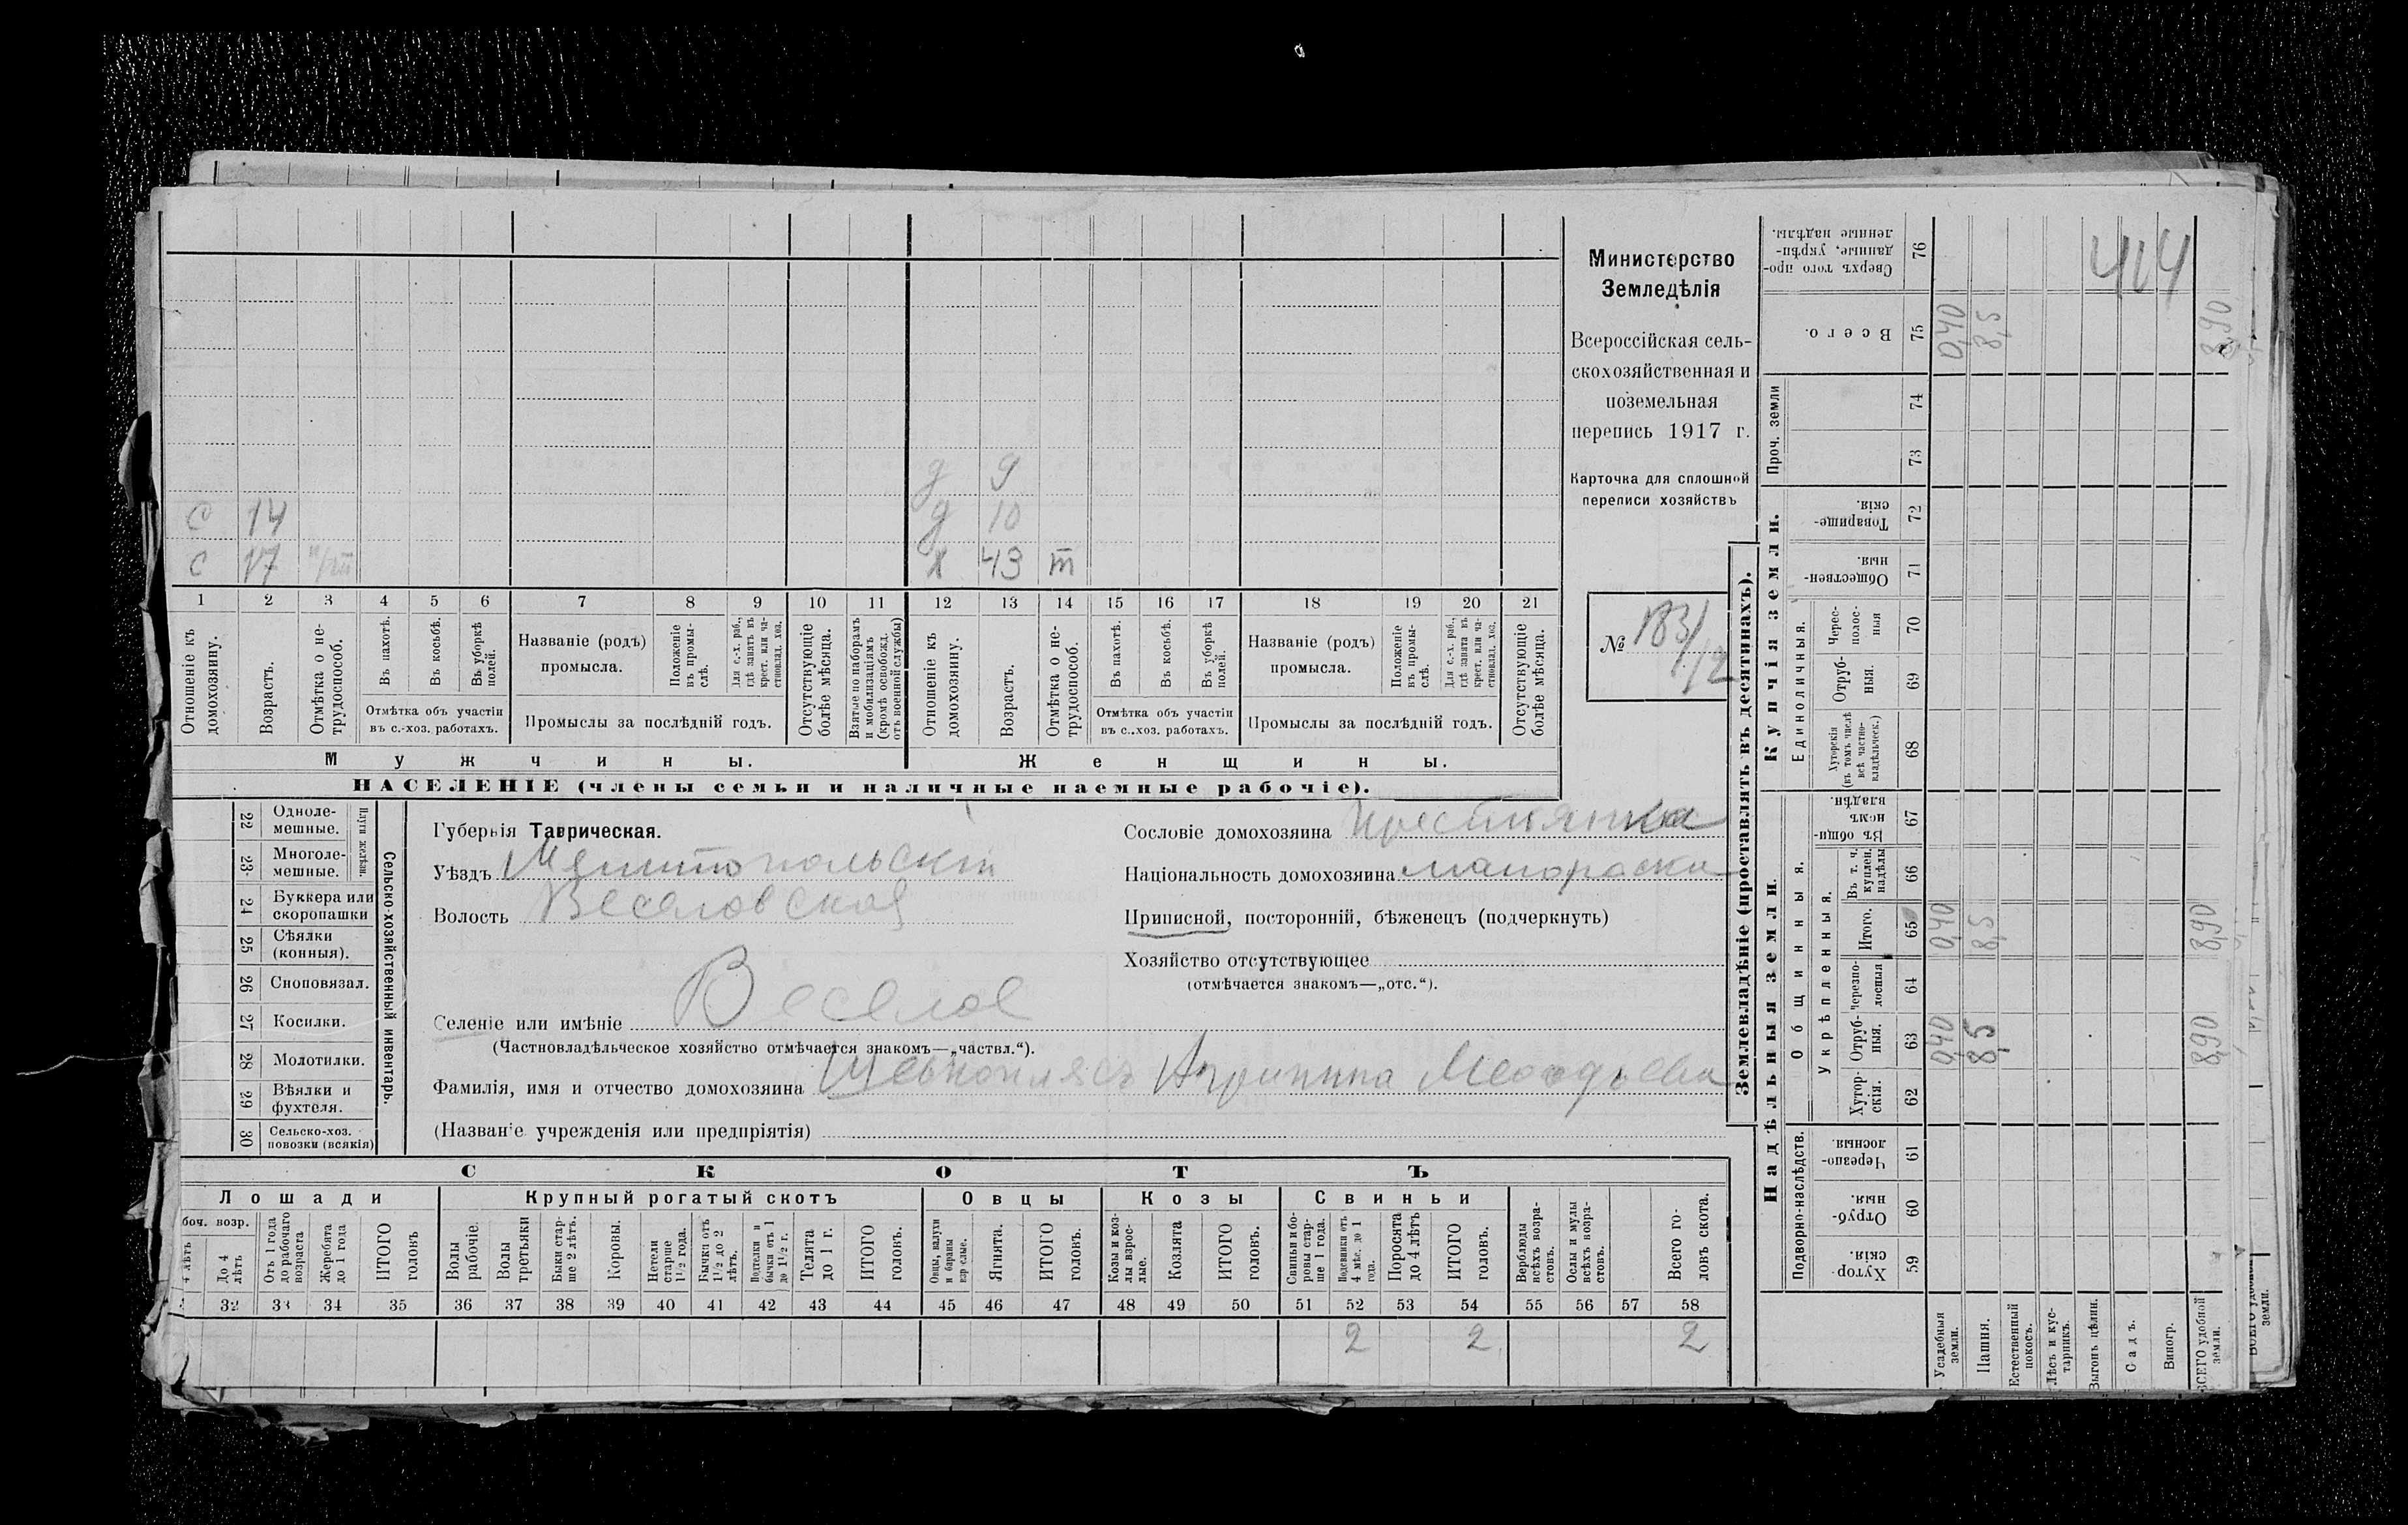 Министерство
Земледѣлія
Всероссійская сель-
скохозяйственная и
поземельная
перепись 1917 г.
Карточка для сплошной
переписи хозяйствъ
№ 183/12
414
д 9
С 14 д 10
С 17 х 43 т
1 2 3 4 5 6 7 8 9 10 11 12 13 14 15 16 17 18 19 20 21
Отношеніе къ домохозяину.
Возрастъ.
Отмѣтка о не-трудоспособ.
Въ пахотѣ.
Въ косьбѣ.
Въ уборкѣ полей.
Отмѣтка объ участіи
въ с.-хоз. работахъ.
Названіе (родъ)
промысла.
Положеніе въ промы-слѣ.
Для с.-х. раб., гдѣ занятъ въ крест. или ча-стновлад. хоз.
Промыслы за послѣдній годъ.
Отсутствующіе болѣе мѣсяца.
Взятые по наборамъ и мобилизаціямъ (кромѣ освобожд. отъ военной службы)
Отношеніе къ домохозяину.
Возрастъ.
Отмѣтка о не-трудоспособ.
Въ пахотѣ.
Въ косьбѣ.
Въ уборкѣ полей.
Отмѣтка объ участіи
въ с.-хоз. работахъ.
Названіе (родъ)
промысла.
Положеніе въ промы-слѣ.
Для с.-х. раб., гдѣ занята въ крест. или ча-стновлад. хоз.
Промыслы за послѣдній годъ.
Отсутствующіе болѣе мѣсяца.
Мужчины. Женщины.
НАСЕЛЕНІЕ (члены семьи и наличные наемные рабочіе).
Сельско-хозяйственный инвентарь.
Плуги желѣзн.
22 Одноле-мешные.
23 Многоле-мешные.
24 Буккера или скоропашки
25 Сѣялки (конныя).
26 Сноповязал.
27 Косилки.
28 Молотилки.
29 Вѣялки и фухтеля.
30 Сельско-хоз. повозки (всякія)
Губернія Таврическая.
Уѣздъ Мелитопольскій
Волость Веселовская
Селеніе или имѣніе Веселое
(Частновладѣльческое хозяйство отмѣчается знакомъ—„частвл.“).
Фамилія, имя и отчество домохозяина Шевкоплясъ Агрипина
(Названіе учрежденія или предпріятія)
Сословіе домохозяина крестьянка
Національность домохозяина малоросска
Приписной, посторонній, бѣженецъ (подчеркнуть)
Хозяйство отсутствующее
(отмѣчается знакомъ—„отс.“).
СКОТЪ
Лошади Крупный рогатый скотъ Овцы Козы Свиньи
боч. возр.
4 лѣтъ
До 4 лѣтъ
Отъ 1 года до рабочаго возраста
Жеребята до 1 года
ИТОГО головъ
Волы рабочіе.
Волы третьяки
Быки стар-ше 2 лѣтъ.
Коровы.
Нетели старше 1½ года.
Бычки отъ 1½ до 2 лѣтъ.
Подтелки и бычки отъ 1 до 1½ г.
Телята до 1 г.
ИТОГО головъ.
Овцы, валухи и бараны взрослые.
Ягнята.
ИТОГО головъ.
Козы и коз-лы взрос-лые.
Козлята
ИТОГО головъ.
Свиньи и бо-ровы стар-ше 1 года.
Подсвинки отъ 4 мѣс. до 1 года.
Поросята до 4 лѣтъ
ИТОГО головъ.
Верблюды всѣхъ возра-стовъ.
Ослы и мулы всѣхъ возра-стовъ.
Всего го-ловъ скота.
32 33 34 35 36 37 38 39 40 41 42 43 44 45 46 47 48 49 50 51 52 53 54 55 56 57 58
2 2 2
Землевладѣніе (проставлять въ десятинахъ).
Надѣльныя земли.
Купчія земли.
Проч. земли
Подворно-наслѣдств.
Общинныя.
Укрѣпленныя.
Единоличныя.
Хутор-скія. 59
Отруб-ныя. 60
Черезпо-лосныя. 61
Хутор-скія. 62
Отруб-ныя. 63
Черезпо-лосныя 64
Итого. 65
Въ т. ч. куплен. надѣлы 66
Въ общи-номъ владѣн. 67
Хуторскія (въ томъ числѣ всѣ частно-владѣльческ.) 68
Отруб-ныя. 69
Черес-полос-ныя 70
Обществен-ныя. 71
Товарище-скія. 72
73
74
Всего. 75
Сверхъ того про-данные, укрѣп-ленные надѣлы. 76
Усадебныя земли. 0,40 0,40 0,40
Пашня. 8,5 8,5 8,5
Естественный покосъ.
Лѣсъ и кус-тарникъ.
Выгонъ цѣлин.
Садъ.
Виногр.
ВСЕГО удобной земли. 8,90 8,90 8,90
земли.